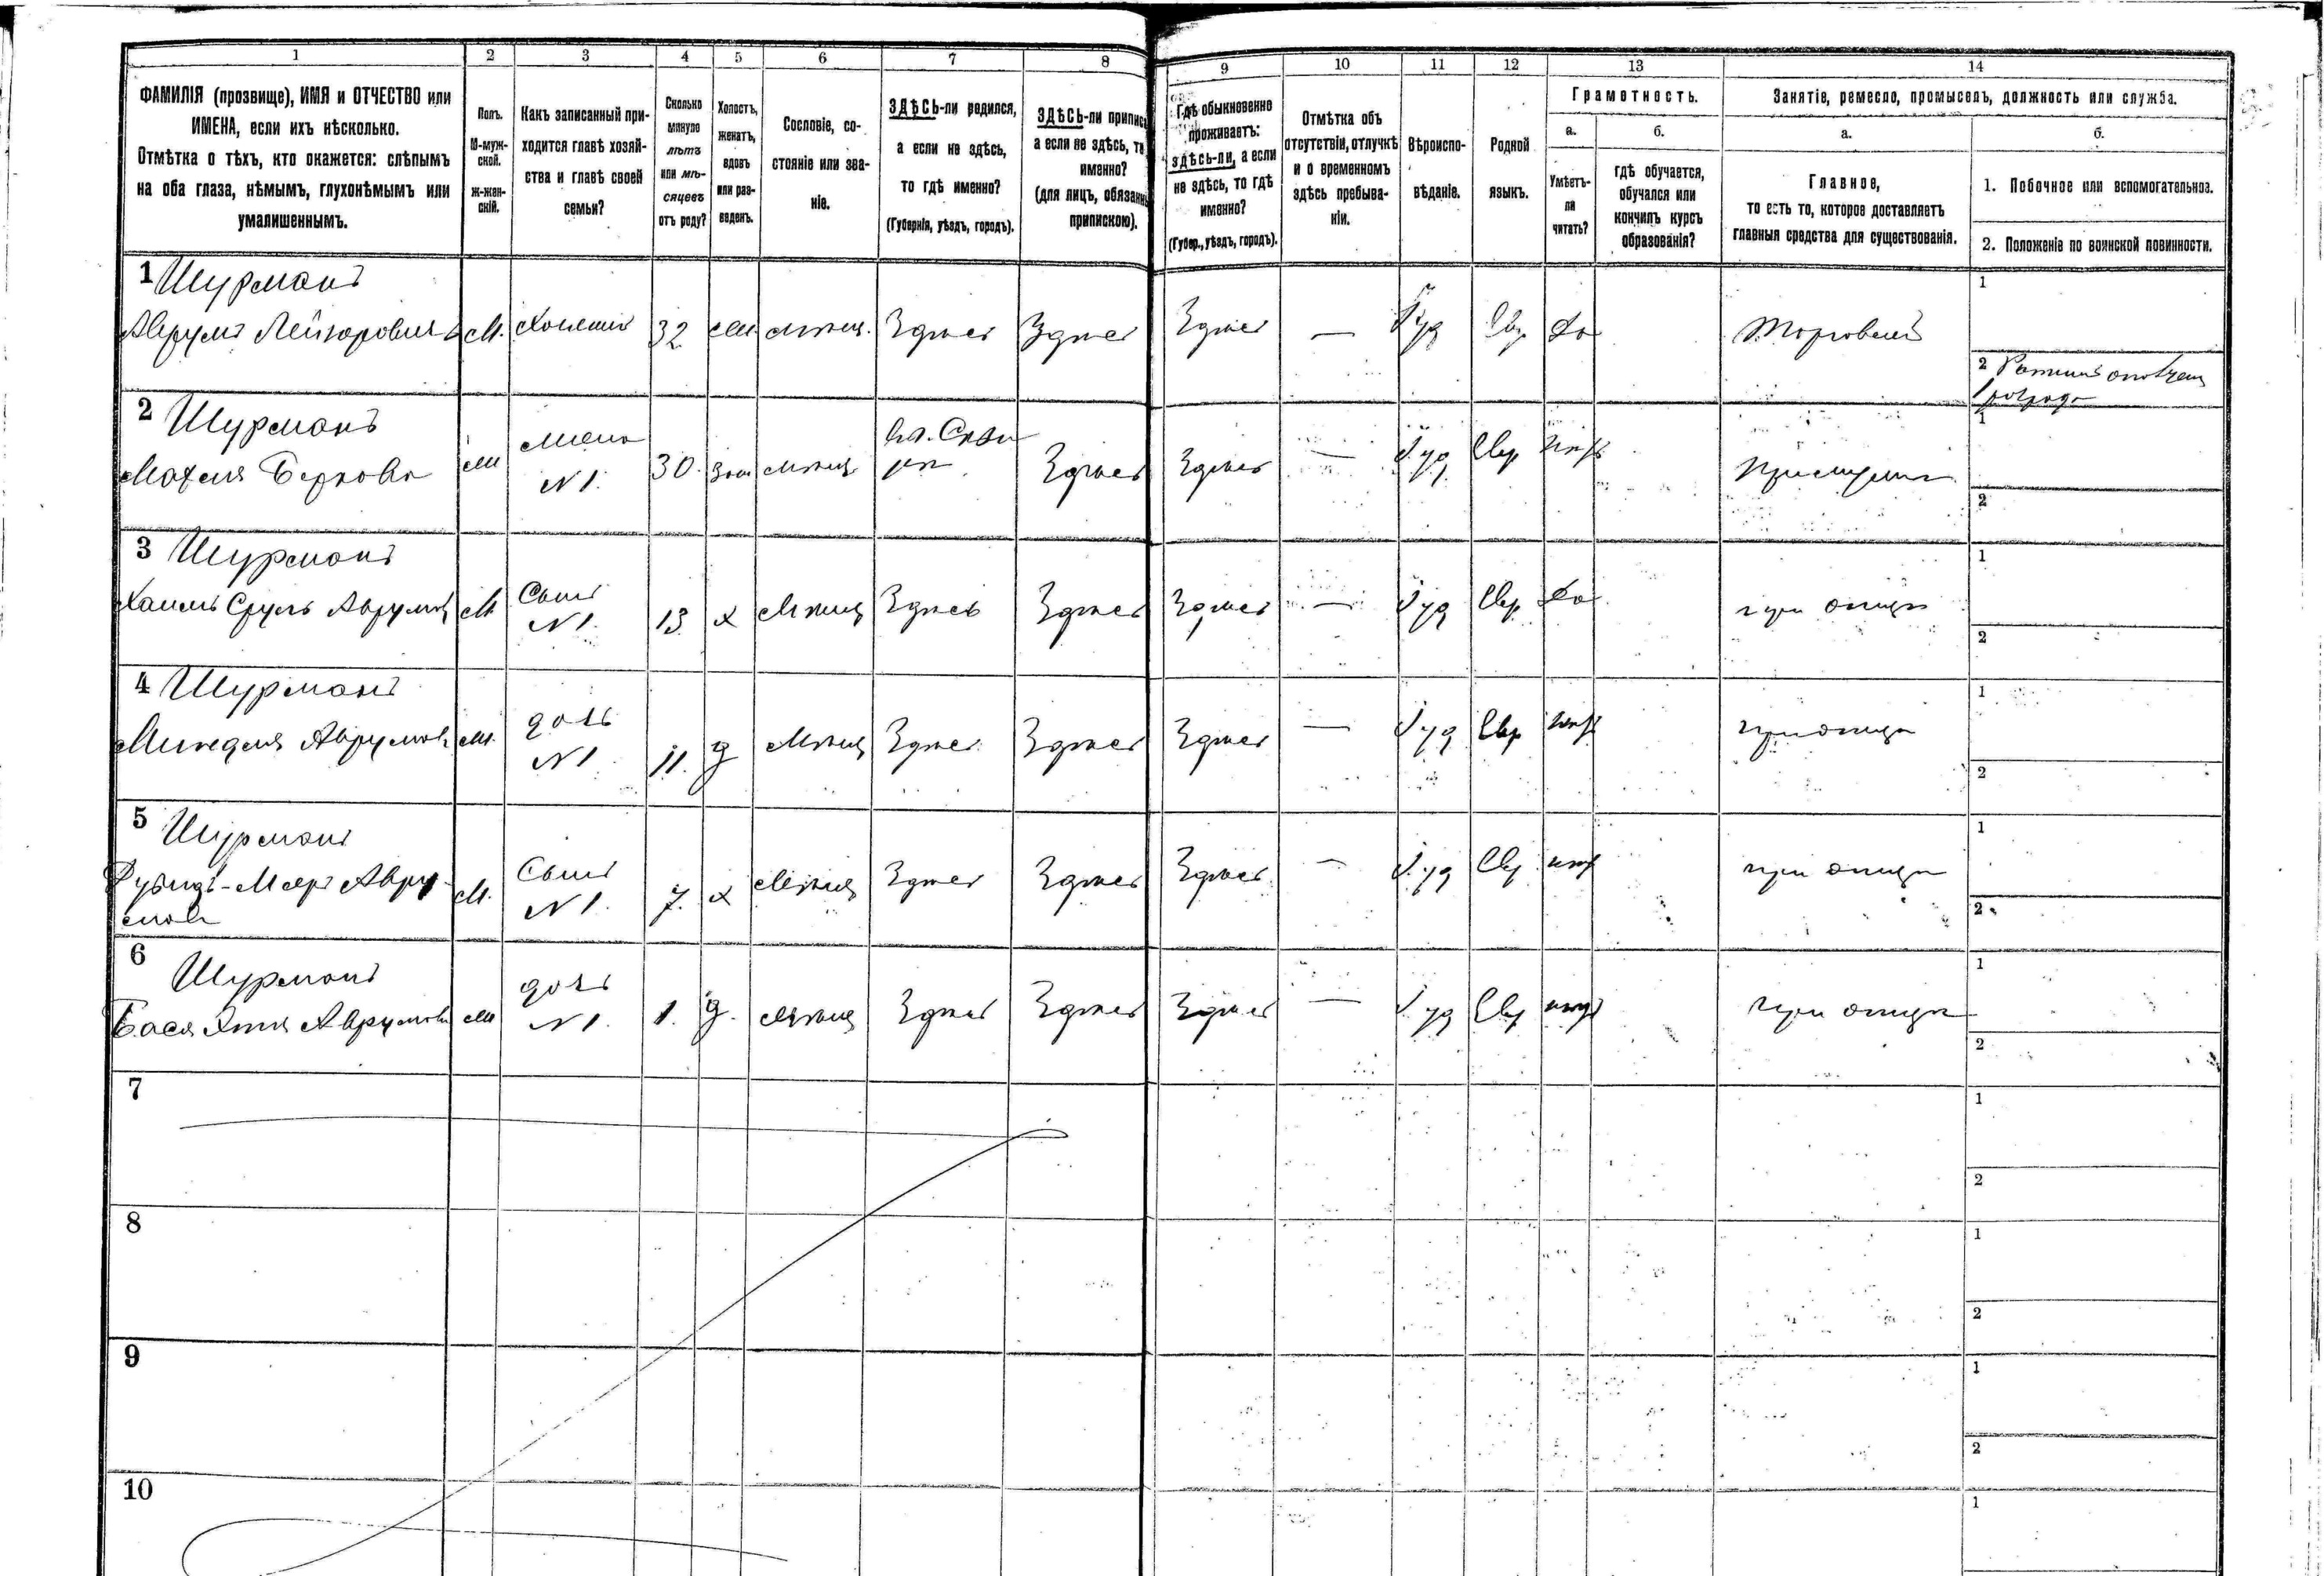 1
2
3
4
5
6
7
8
ФАМИЛІЯ (прозвище), ИМЯ и ОТЧЕСТВО или
ИМЕНА, если ихъ нѣсколько.
Отмѣтка о тѣхъ, кто окажется: слѣпымъ
на оба глаза, нѣмымъ, глухонѣмымъ или
умалишеннымъ.
Полъ.
М-муж-
ской.
Ж-жен-
скій.
Какъ записанный при-
ходится главѣ хозяй-
ства и главѣ своей
семьи?
Сколько
минуло
лѣтъ
или мѣ-
сяцевъ
отъ роду?
Холостъ,
женатъ,
вдовъ
или раз-
веденъ.
Сословіе, со-
стояніе или зва-
ніе.
ЗДѢСЬ-ли родился,
а если не здѣсь,
то гдѣ именно?
(Губернія, уѣздъ, городъ).
ЗДѢСЬ-ли приписа
а если не здѣсь, то
именно?
(для лицъ, обязанны
припискою).
9
10
11
12
13
14
Гдѣ обыкновенно
проживаетъ:
здѣсь-ли, а если
не здѣсь, то гдѣ
именно?
(Губер., уѣздъ, городъ).
Отмѣтка объ
отсутствіи, отлучкѣ
и о временномъ
здѣсь пребыва-
ніи.
Вѣроиспо-
вѣданіе.
Родной
языкъ.
Грамотность.
а.
Умѣетъ-
ли
читать?
б.
гдѣ обучается,
обучался или
кончилъ курсъ
образованія?
Занятіе, ремесло, промыселъ, должность или служба.
а.
Главное,
то есть то, которое доставляетъ
главныя средства для существованія.
б.
1. Побочное или вспомогательное.
2. Положеніе по воинской повинности.
1 Шурманъ
Аврумъ Лейзоровичъ М. Хозяинъ 32 мѣщ. Здѣсь Здѣсь Здѣсь — Іуд Евр Да Торговецъ
1
2 Ратникъ ополчен
1 разряда
2 Шурманъ
Беркова жена
N 1. 30. мѣщ Здѣсь Здѣсь — Іуд Евр
1
2
3 Шурманъ
Хаимъ Сруль Аврумов М Сынъ
N 1. 13 х Мѣщ Здѣсь Здѣсь Здѣсь — Іуд Евр Да при отцѣ
1
2
4 Шурманъ
Аврумов дочь
N 1 11. д Мѣщ Здѣсь Здѣсь Здѣсь — Іуд Евр нѣт при отцѣ
1
2
5 Шурманъ
Меер Авру-
мов М. Сынъ
N 1. 7. х Мѣщ Здѣсь Здѣсь Здѣсь — Іуд Евр нѣт при отцѣ
1
2
6 Шурманъ
Бася Аврумов дочь
N 1. 1. д. Мѣщ Здѣсь Здѣсь Здѣсь — Іуд Евр нѣт при отцѣ
1
2
7
1
2
8
1
2
9
1
2
10
1